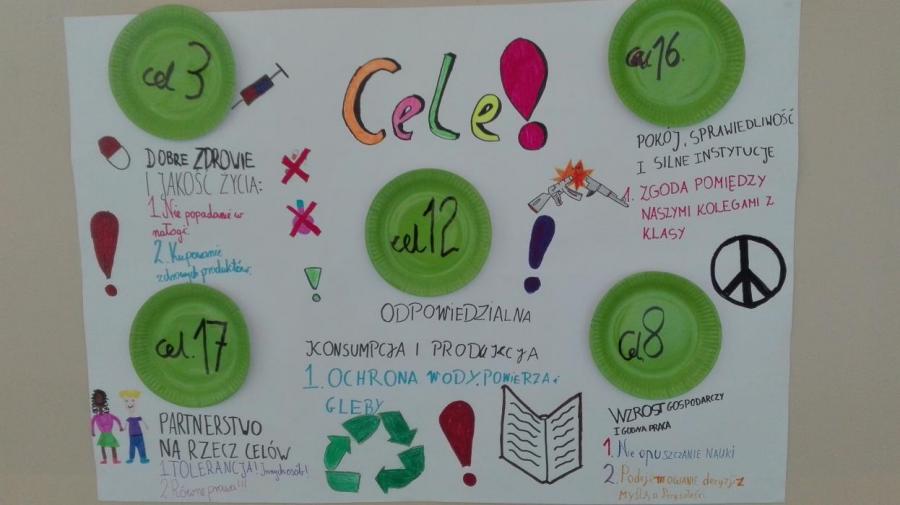 Cele!
cel 3
DOBRE ZDROWIE
I JAKOŚĆ ŻYCIA:
1. Nie popadanie w
nałogi
2. Kupowanie
zdrowych produktów
cel 16.
POKÓJ, SPRAWIEDLIWOŚĆ
I SILNE INSTYTUCJE
1. ZGODA POMIĘDZY
NASZYMI KOLEGAMI Z
KLASY
cel 12
ODPOWIEDZIALNA
KONSUMPCJA I PRODUKCJA
1. OCHRONA WODY, POWIERZA i
GLEBY
cel. 17
PARTNERSTWO
NA RZECZ CELÓW
1. TOLERANCJA! Innych osób!
2. Równe prawa!!!
Cel. 8
WZROST GOSPODARCZY
I GODNA PRACA
1. Nie opuszczanie NAUKI
2. Podejmowanie decyzji z
myślą o